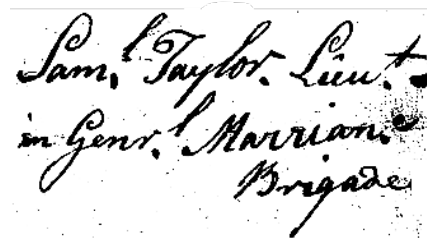 Sam.l Taylor. Lieu.t
in Genr.l Marrian.s
Brigade